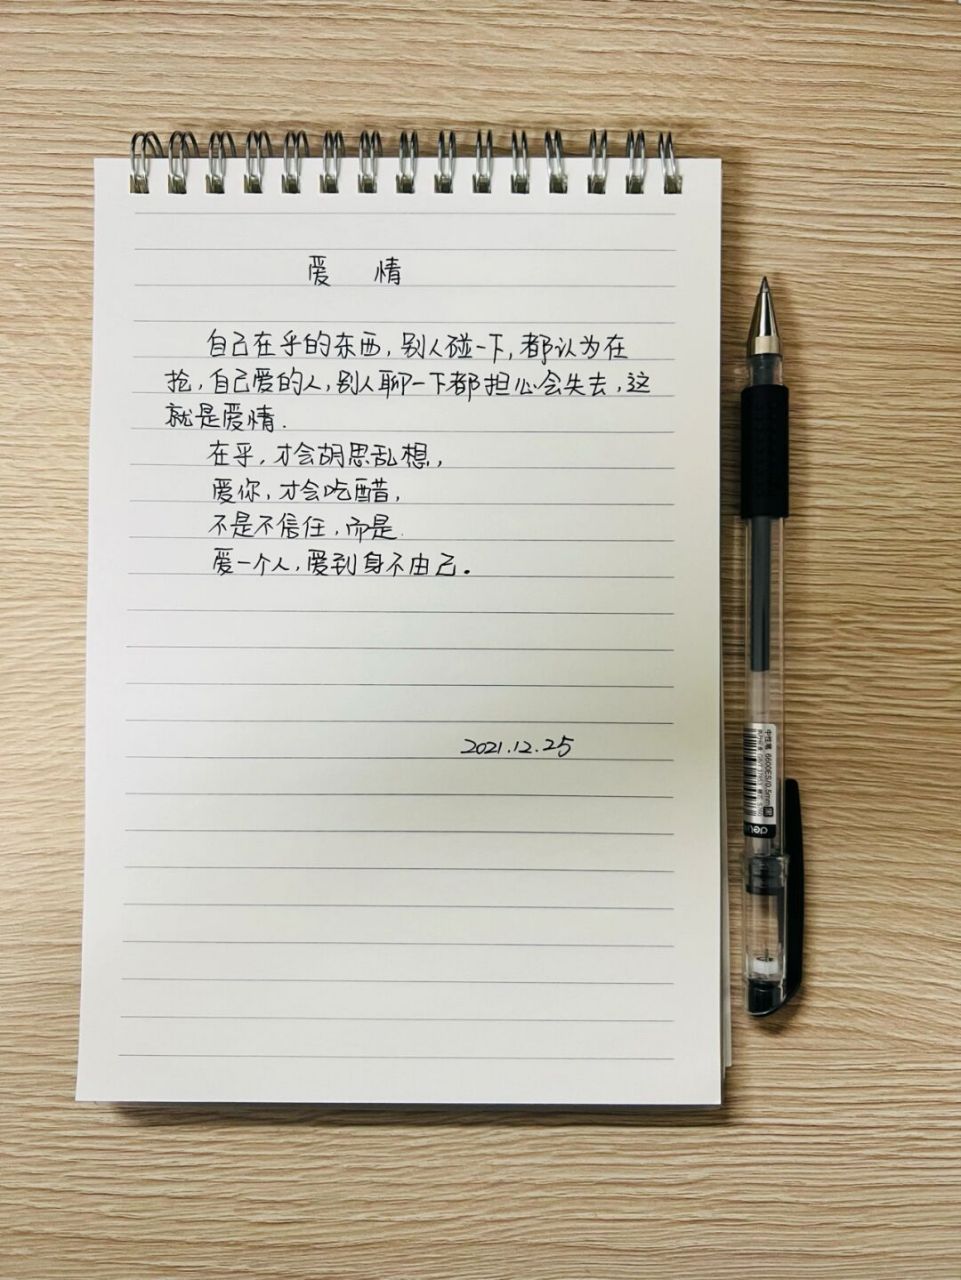 爱 情
自己在乎的东西,别人碰一下,都认为在
抢,自己爱的人,别人聊一下都担心会失去,这
就是爱情.
在乎,才会胡思乱想,
爱你,才会吃醋,
不是不信任,而是.
爱一个人,爱到身不由己.
2021.12.25
中性笔 6600ES/0.5mm 黑
deli